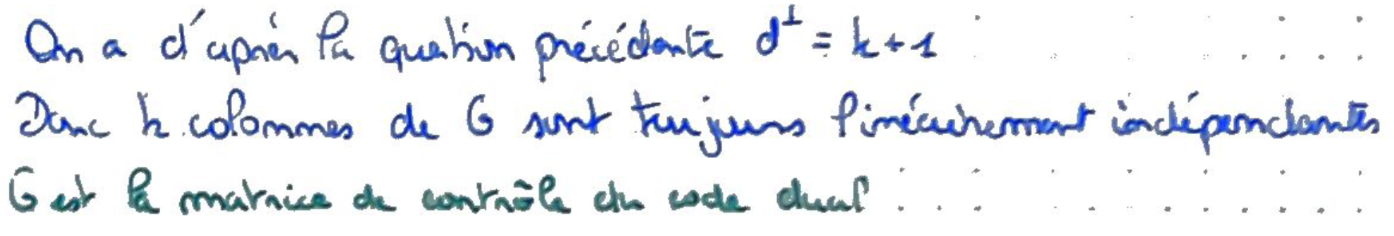 On a d'après la question précédente d⊥ = k+1
Donc k colonnes de G sont toujours linéairement indépendantes
G est la matrice de contrôle du code dual